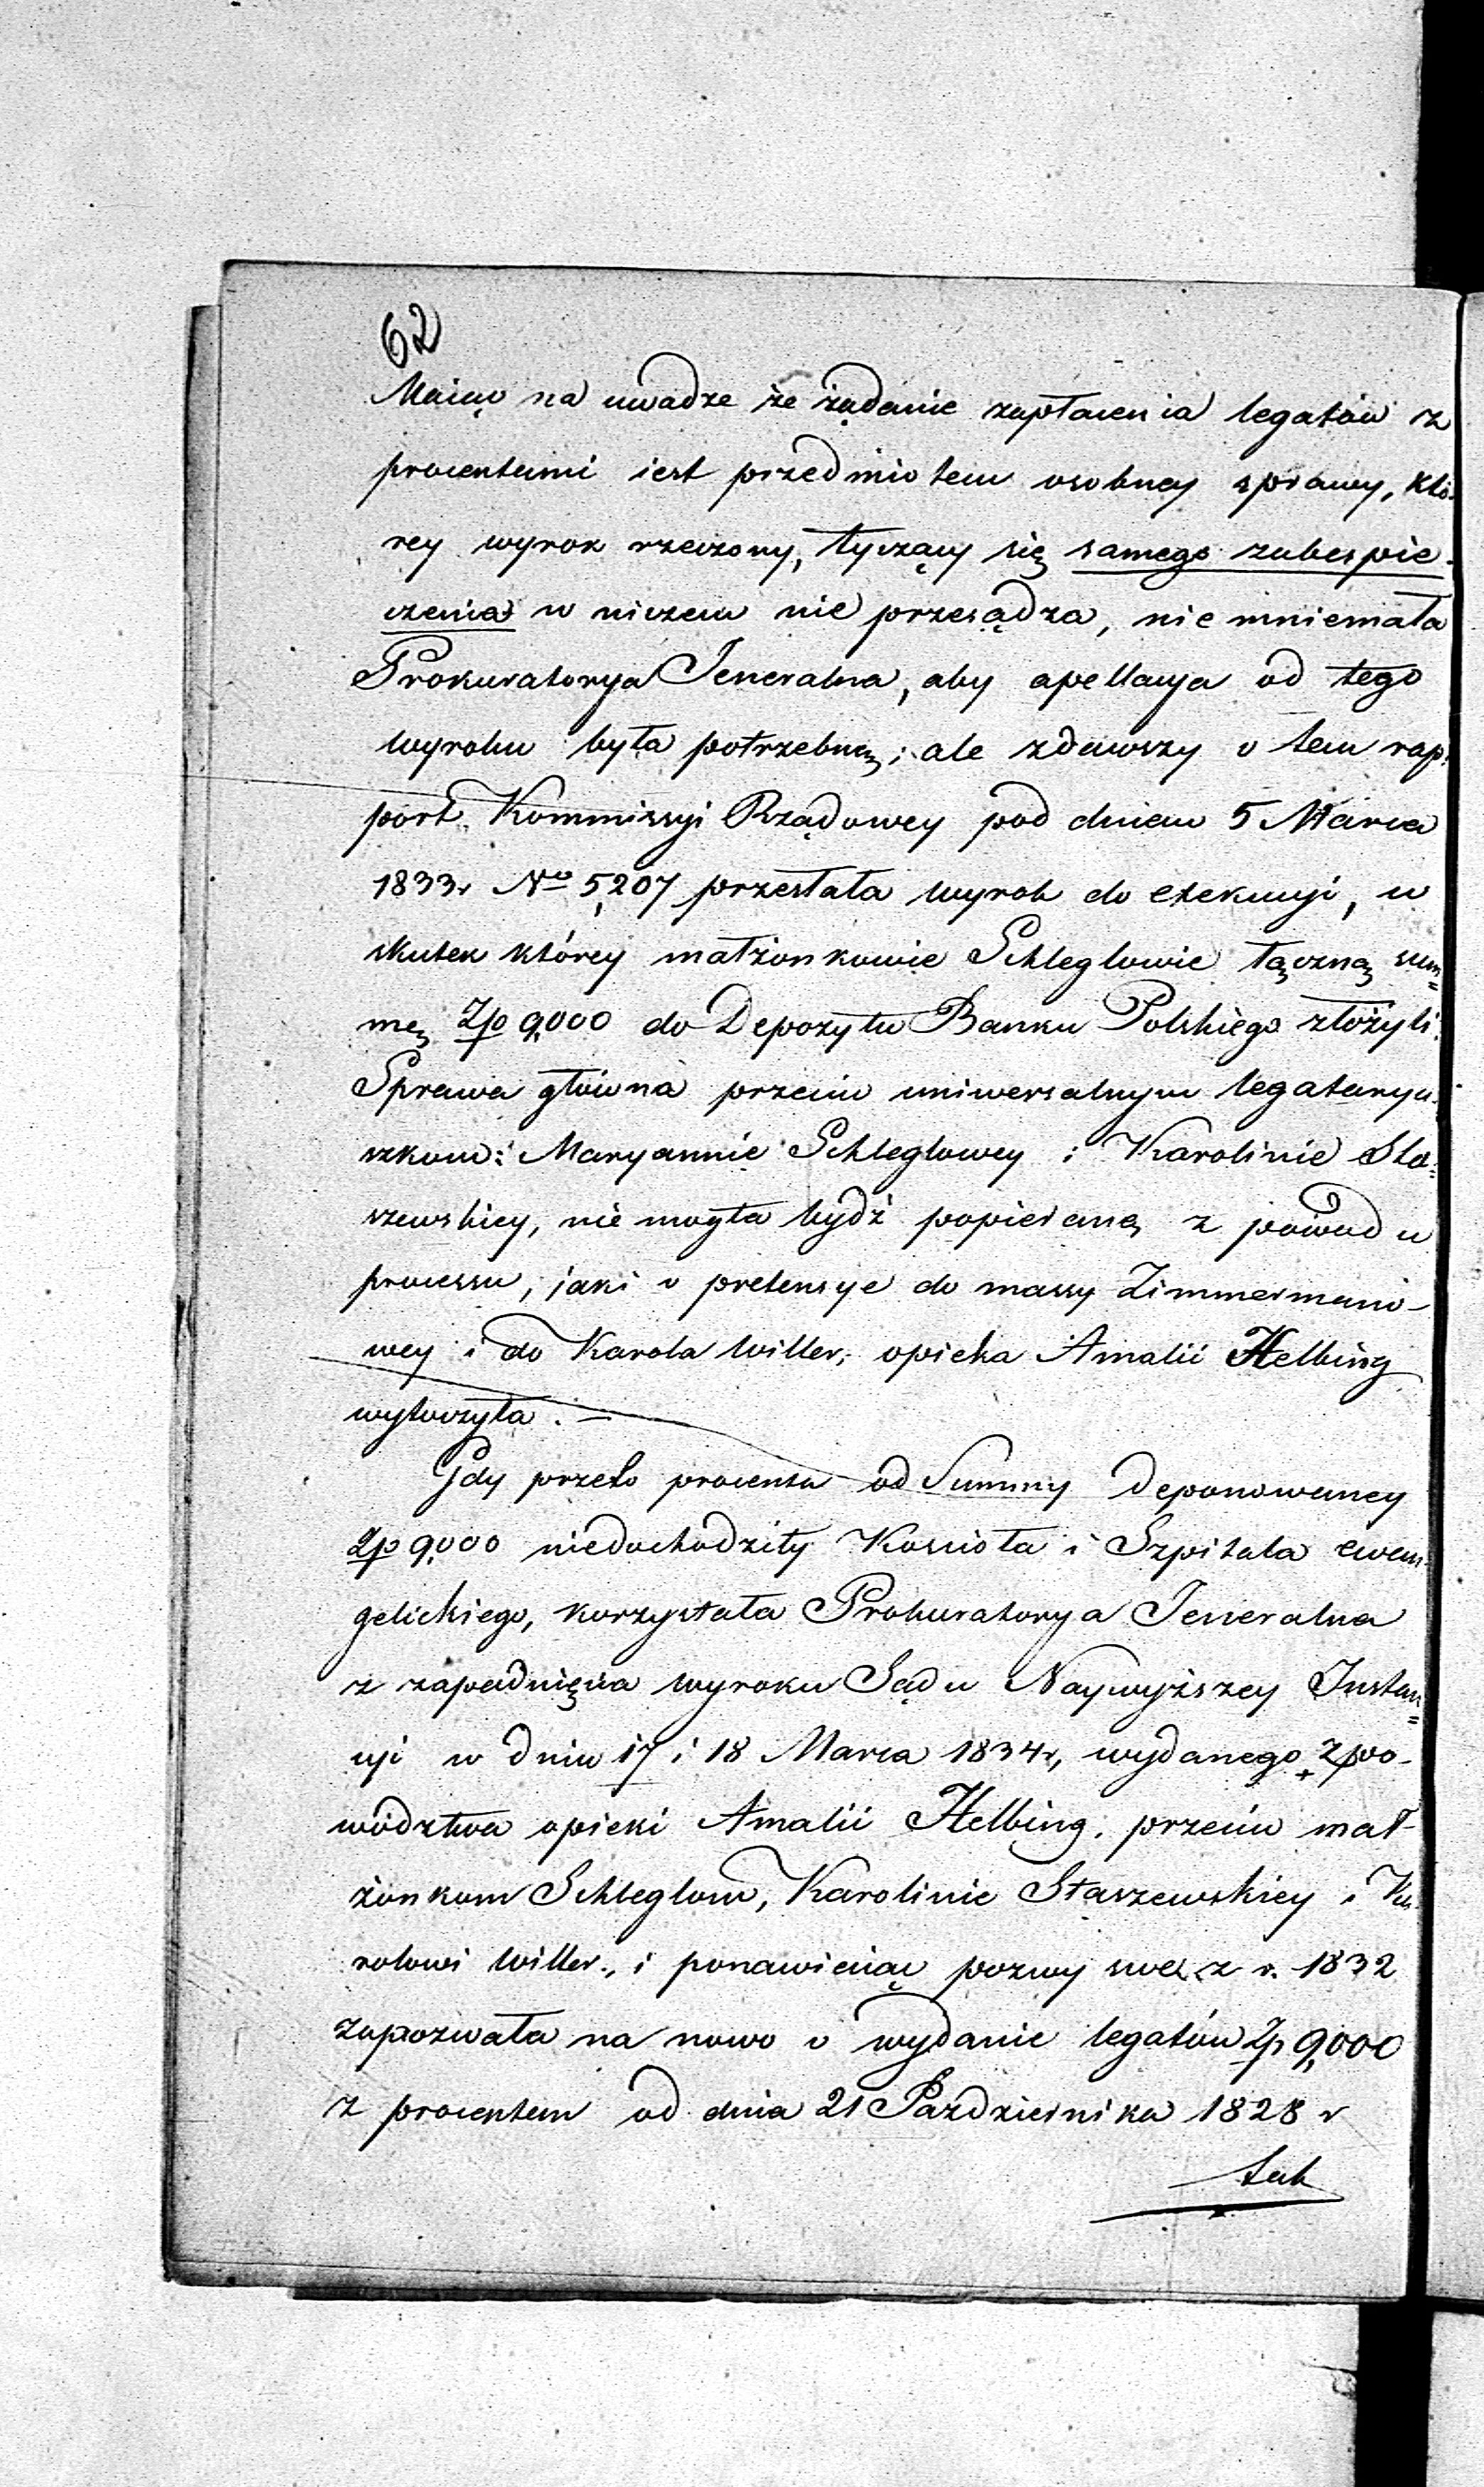 62
Maiąc na uwadze że żądanie zapłacenia legatów z
procentami iest przedmiotem osobney sprawy, któ-
rey wyrok rzeczony, tyczący się samego zabespie-
czenia w niczem nie przesądza, nie mniemała
Prokuratorya Jeneralna, aby apellacya od tego
wyroku była potrzebną; ale zdawszy o tem rap-
port Kommissyi Rządowey pod dniem 5 Marca
1833r No 5,207 przesłała wyrok do exekucyi, w
skutek którey małżonkowie Schleglowie łączną sum=
mę Zp 9,000 do Depozytu Banku Polskiego złożyli.
Sprawa główna przeciw uniwersalnym legataryu-
szkom: Maryannie Schleglowey i Karolinie Sta=
szewskiey, nie mogła bydź popieraną z powodu
processu, jaki o pretensye do massy Zimmermano-
wey i do Karola Willer, opieka Amalii Helbing
wytoczyła. —
Gdy przeto procenta od Summy deponowaney
Zp 9,000 niedochodziły Kościoła i Szpitala ewan-
gelickiego, korzystała Prokuratorya Jeneralna
z zapadnięcia wyroku Sądu Naywyższey Instan=
cyi w dniu 17 i 18 Marca 1834r, wydanego z po-
wództwa opieki Amalii Helbing, przeciw mał-
żonkom Schleglom, Karolinie Staszewskiey i Ka-
rolowi Willer, i ponawiaiąc pozwy swe z r. 1832
zapozwała na nowo o wydanie legatów Zp 9,000
z procentem od dnia 21 Października 1828 r
tak